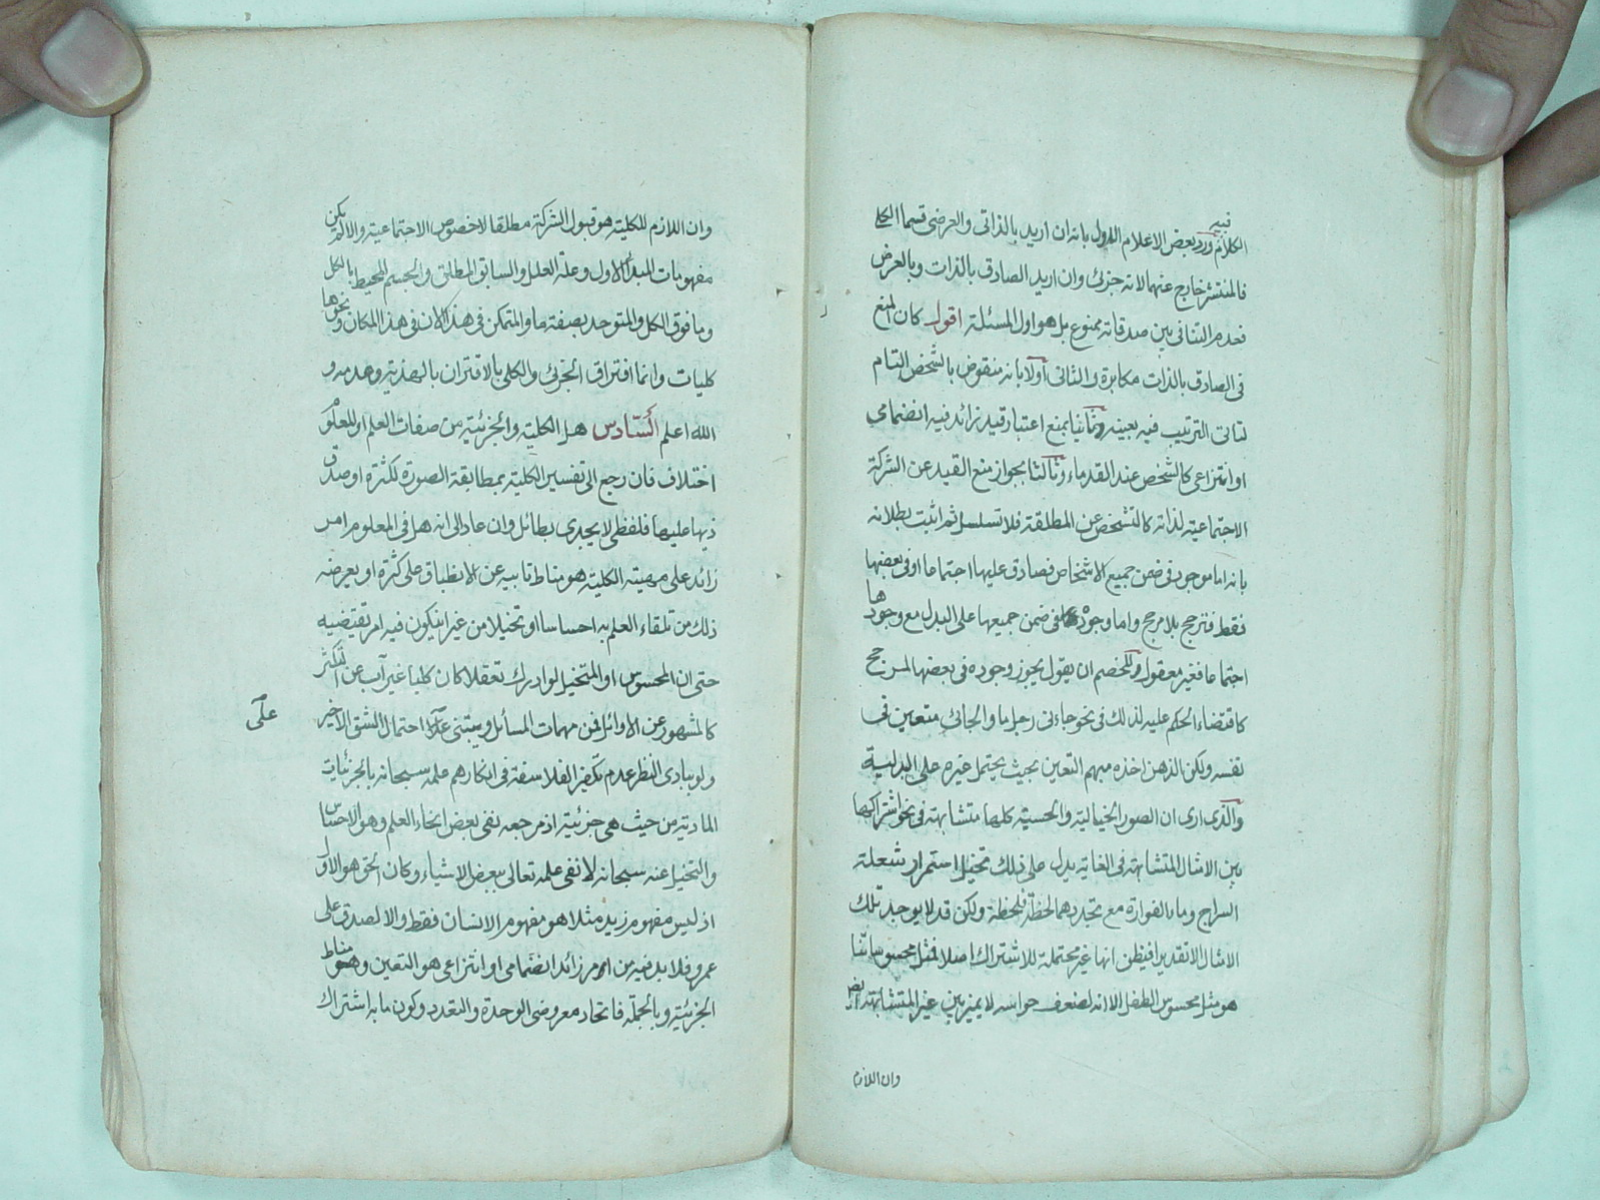 الكلام فيه ورد بعض الاعلام الاول بانه ان اريد بالذاتى والعرضى قسما الكلى
فالمنتشر خارج عنهما لانه جزئى وان اريد الصادق بالذات وبالعرض
فعدم التنافى بين صدقاته ممنوع بل هو اول المسئلة اقول كان المنع
فى الصادق بالذات مكابرة والثانى اولا بانه منقوض بالشخص التام
لتاتى الترتيب فيه بعينه وثانيا بمنع اعتبار قيد زائد فيه انضمامى
او انتزاعى كالشخص عند القدماء وثالثا بجواز منع القيد عن الشركة
الاجتماعية لذاته كالتشخص عن المطلقة فلا تسلسل ثم اثبت بطلانه
بانه اما موجود فى ضمن جميع الاشخاص فصادق عليها اجتماعا او فى بعضها
فقط فترجح بلا مرجح واما وجودها فى ضمن جميعها على البدل مع وجودها
اجتماعا فغير معقول وللخصم ان يقول يجوز وجوده فى بعضها المرجح
كاقتضاء الحكم عليه لذلك فى نحو جاءنى رجل ما والجائى متعين فى
نفسه ولكن الذهن اخذه مبهم التعين بحيث يحتمل غيره على البدلية
والذى ارى ان الصور الخيالية والحسية كلها متشابهة فى نحو اشتراكها
بين الامثال المتشابهة فى الغاية يدل على ذلك تخيل استمرار شعلة
السراج وماء الفوارة مع تجددهما لحظة فلحظة ولكن قد لا يوجد تلك
الامثال الا تقديرا فيظن انها غير محتملة للاشتراك اصلا فمثل محسوساتنا
هو مثل محسوس الطفل الا انه لضعف حواسه لا يميز بين غير المتشابهة ايض
وان اللازم
وان اللازم للكلية هو قبول الشركة مطلقا لا خصوص الاجتماعية والا لم يكن
مفهومات المبدأ الاول وعلة العلل والسابق المطلق والجسم المحيط بالكل
وما فوق الكل والمتوحد بصفة ما والمتمكن فى هذا الآن فى هذا المكان ونحوها
كليات وانما افتراق الجزئى والكلى بالاقتران بالهذية وعدمه و
الله اعلم السادس هل الكلية والجزئية من صفات العلم او المعلوم
اختلاف فان رجع الى تفسير الكلية بمطابقة الصورة لكثرة او صدق
ذيها عليها فلفظى لا يجدى بطائل وان عاد الى انه هل فى المعلوم امر
زائد على مهية الكلية هو مناط تابيه عن الانطباق على كثرة او يعرضه
ذلك من تلقاء العلم به احساسا او تخيلا من غير ان يكون فيه امر يقتضيه
حتى ان المحسوس او المتخيل لو ادرك تعقلا كان كليا غير آب عن التكثر
كالمشهور عن الاوائل فمن مهمات المسائل ويبتنى على احتمال الشق الاخير
على
ولو ببادى النظر عدم تكفير الفلاسفة فى انكارهم علمه سبحانه بالجزئيات
المادية من حيث هى جزئية اذ مرجعه نفى بعض انحاء العلم وهو الاحساس
والتخيل عنه سبحانه لا نفى علمه تعالى ببعض الاشياء وكان الحق هو الاول
اذ ليس مفهوم زيد مثلا هو مفهوم الانسان فقط والا لصدق على
عمرو فلا بد فيه من امر زائد انضمامى او انتزاعى هو التعين وهو مناط
الجزئية وبالجملة فاتحاد معروضى الوحدة والتعدد وكون ما به اشتراك